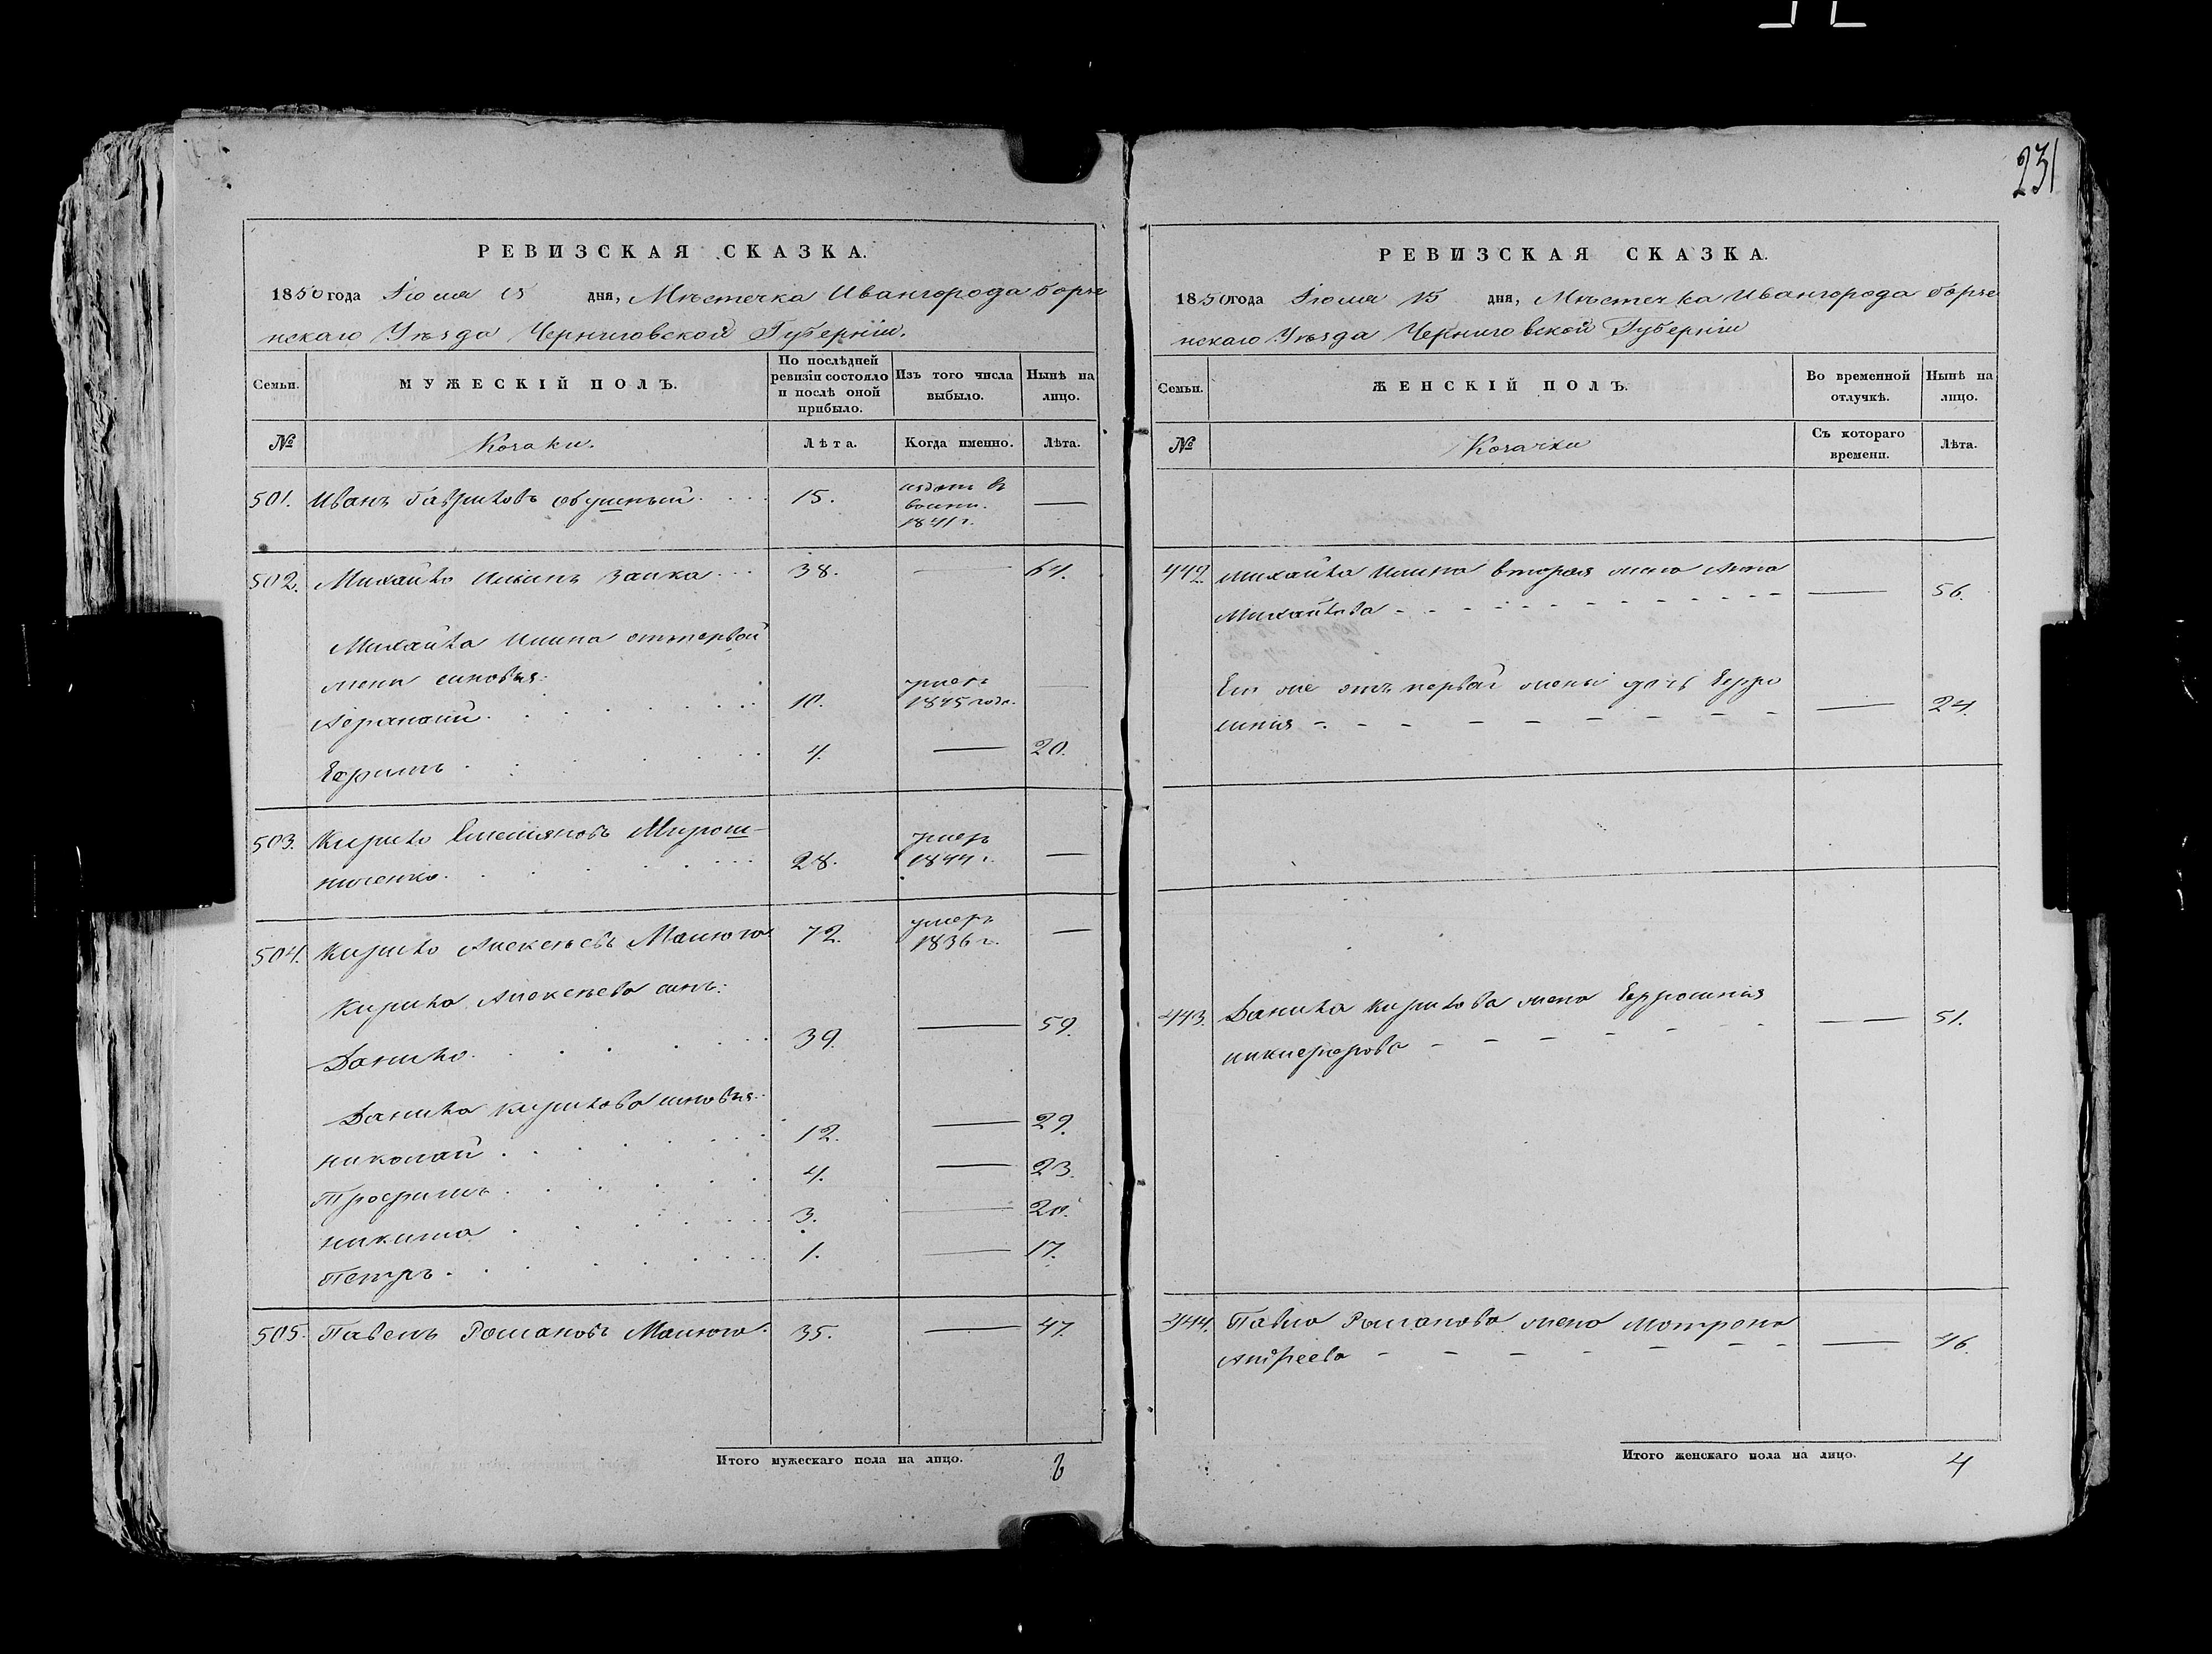 231
РЕВИЗСКАЯ СКАЗКА.
1850 года Іюля 15 дня, Мѣстечка Ивангорода Борзе
нскаго Уѣзда Черниговской Губерніи.
Семьи.
МУЖЕСКІЙ ПОЛЪ.
По послѣдней ревизіи состояло и послѣ оной прибыло.
Изъ того числа выбыло.
Нынѣ на лицо.
№
Козаки.
Лѣта.
Когда именно.
Лѣта.
501. Иванъ Гавриловъ 15. —
1841 г.
502. Михайло Ильинъ Заика 38. — 64.
Михайла Ильина отъ первой
жены сыновья:
Афанасий 10. умеръ 1845 года.
Ефимъ 4. — 20.
503. Кирило Емельяновъ Мирош-
ниченко 28. умеръ 1844 г. —
504. Кирило Алексѣевъ Малюга 72. умеръ 1836 г. —
Кирила Алексѣева сынъ:
Данило 39. — 59.
Данила Кирилова сыновья:
Николай 12. — 29.
Трофимъ 4. — 23.
Никита 3. — 20.
Петръ 1. — 17.
505. Павелъ Романовъ Малюга 35. — 47.
Итого мужескаго пола на лицо. 8
РЕВИЗСКАЯ СКАЗКА.
1850 года Іюля 15 дня, Мѣстечка Ивангорода Борзе
нскаго Уѣзда Черниговской Губерніи
Семьи.
ЖЕНСКІЙ ПОЛЪ.
Во временной отлучкѣ.
Нынѣ на лицо.
№
Козачки
Съ котораго времени.
Лѣта.
442. Михайла Ильина вторая жена Анна
Михайлова — 56.
Его же отъ первой жены дочь Евфи
— 24.
443. Данила Кирилова жена Евфросинія
Никифорова — 51.
444. Павла Романова жена Мотрона
Андреева — 46.
Итого женскаго пола на лицо. 4